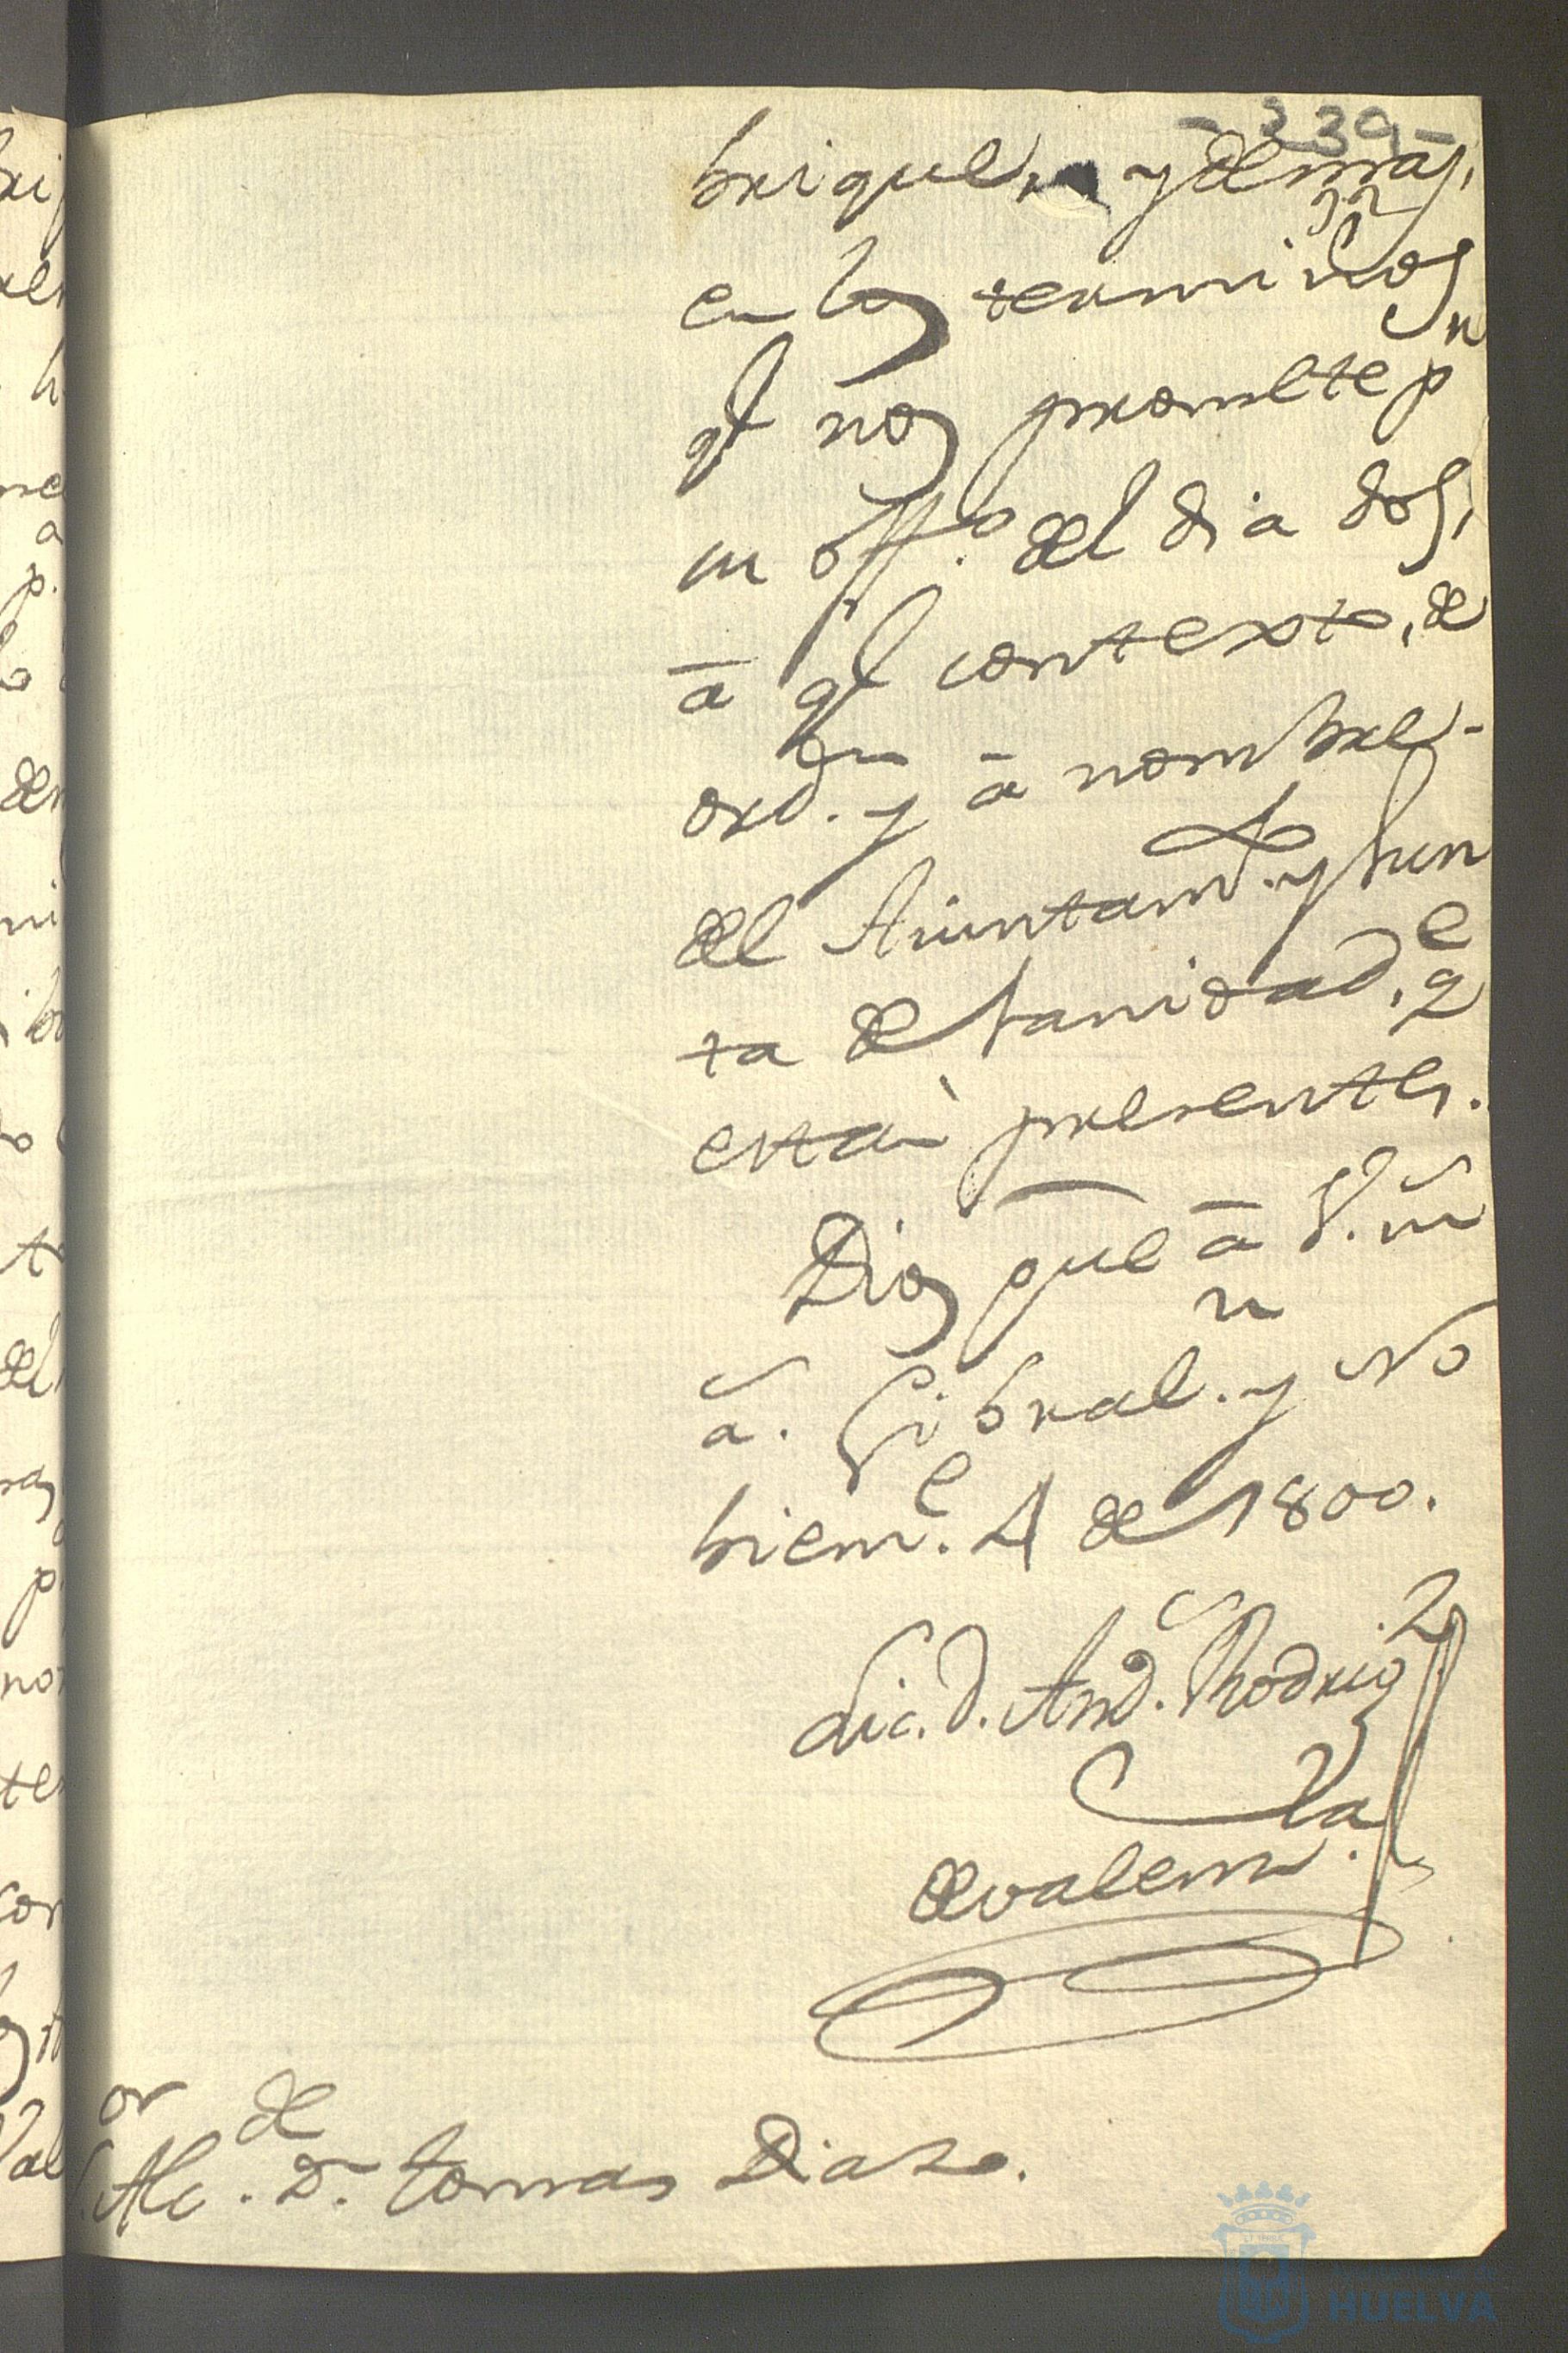 -339-
briques, y demas,
en los terminos
qᵉ nos promete pⁿ
su offº. del dia dos,
ā qᵉ contexto, de
ordⁿ. y ā nombre-
del Aiuntamᵗᵒ. y Jun
ta de Sanidad, qᵉ
estàn presentes.
Dios gūe ā V. m̃
ã. Gibralⁿ. y No
biemᵉ. 4 de 1800.
Lic. d. And. Rodrigᶻ
de valenᵃ.
Sᵒʳ Alcᵈᵉ. Dⁿ. tomas Diaz.
HUELVA